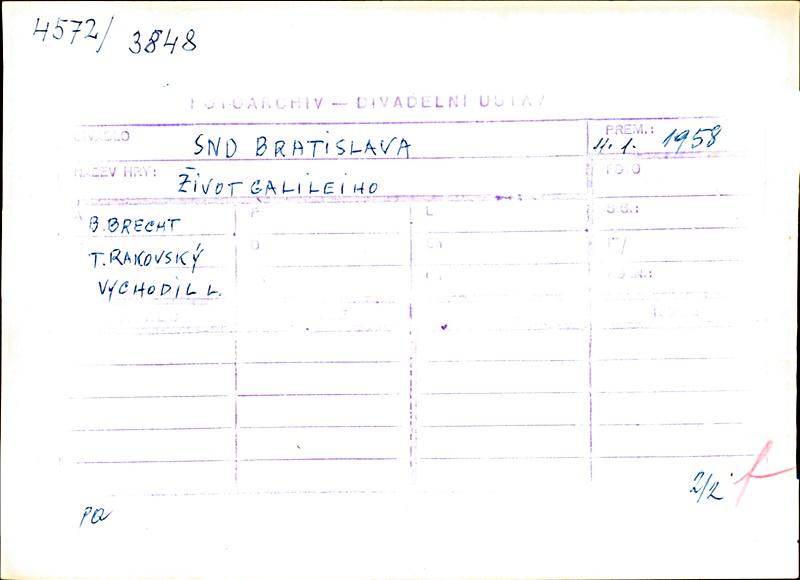 4572/ 3848
FOTOARCHIV — DIVADELNÍ ÚSTAV
DIVADLO SND BRATISLAVA PREM.: 4. 1. 1958
NÁZEV HRY: ŽIVOT GALILEIHO FOTO
A B. BRECHT P L
T. RAKOVSKÝ
VYCHODIL L.
2/2
PQ